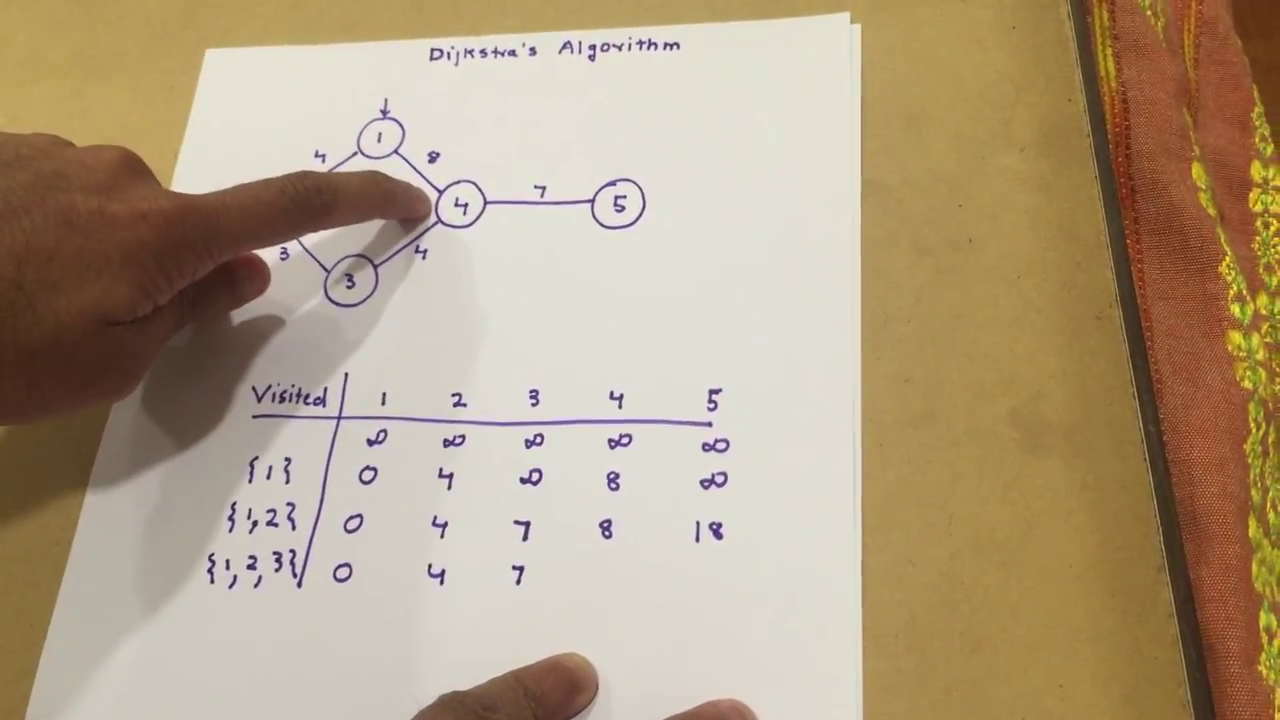 Dijkstra's Algorithm
1
4 8
4 7 5
3 4
3
Visited 1 2 3 4 5
∞ ∞ ∞ ∞ ∞
{1} 0 4 ∞ 8 ∞
{1,2} 0 4 7 8 18
{1,2,3} 0 4 7